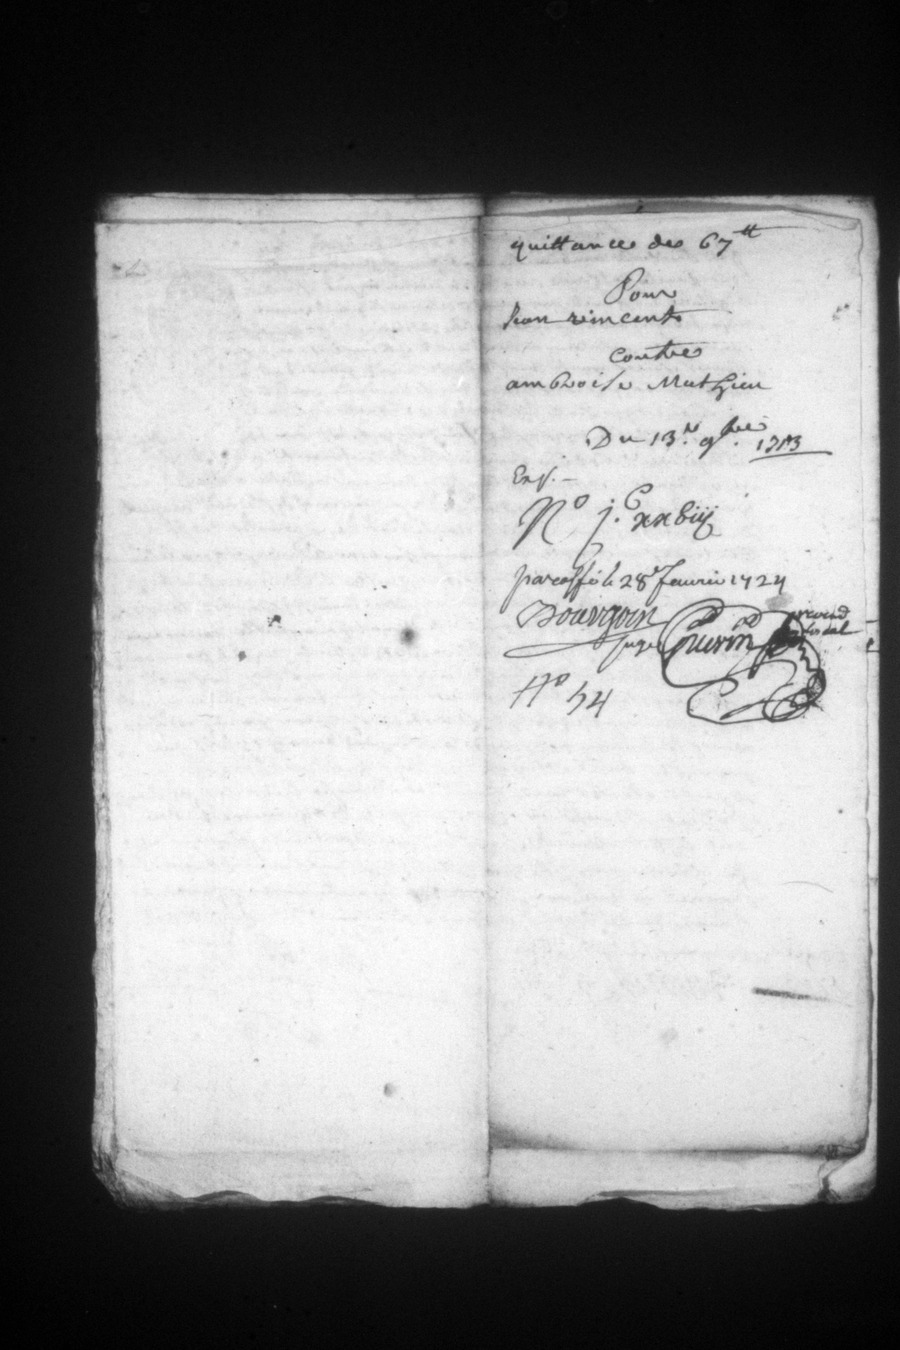 quittance de 67tt
Pour
Jean vincent
Contre
ambroise Mathieu
Du 13.e 9bre. 1713
No j.C xxbiij
paraffé le 28e feurier 1724
Bourgoin
juge Guerin procur
fiscal
No 54